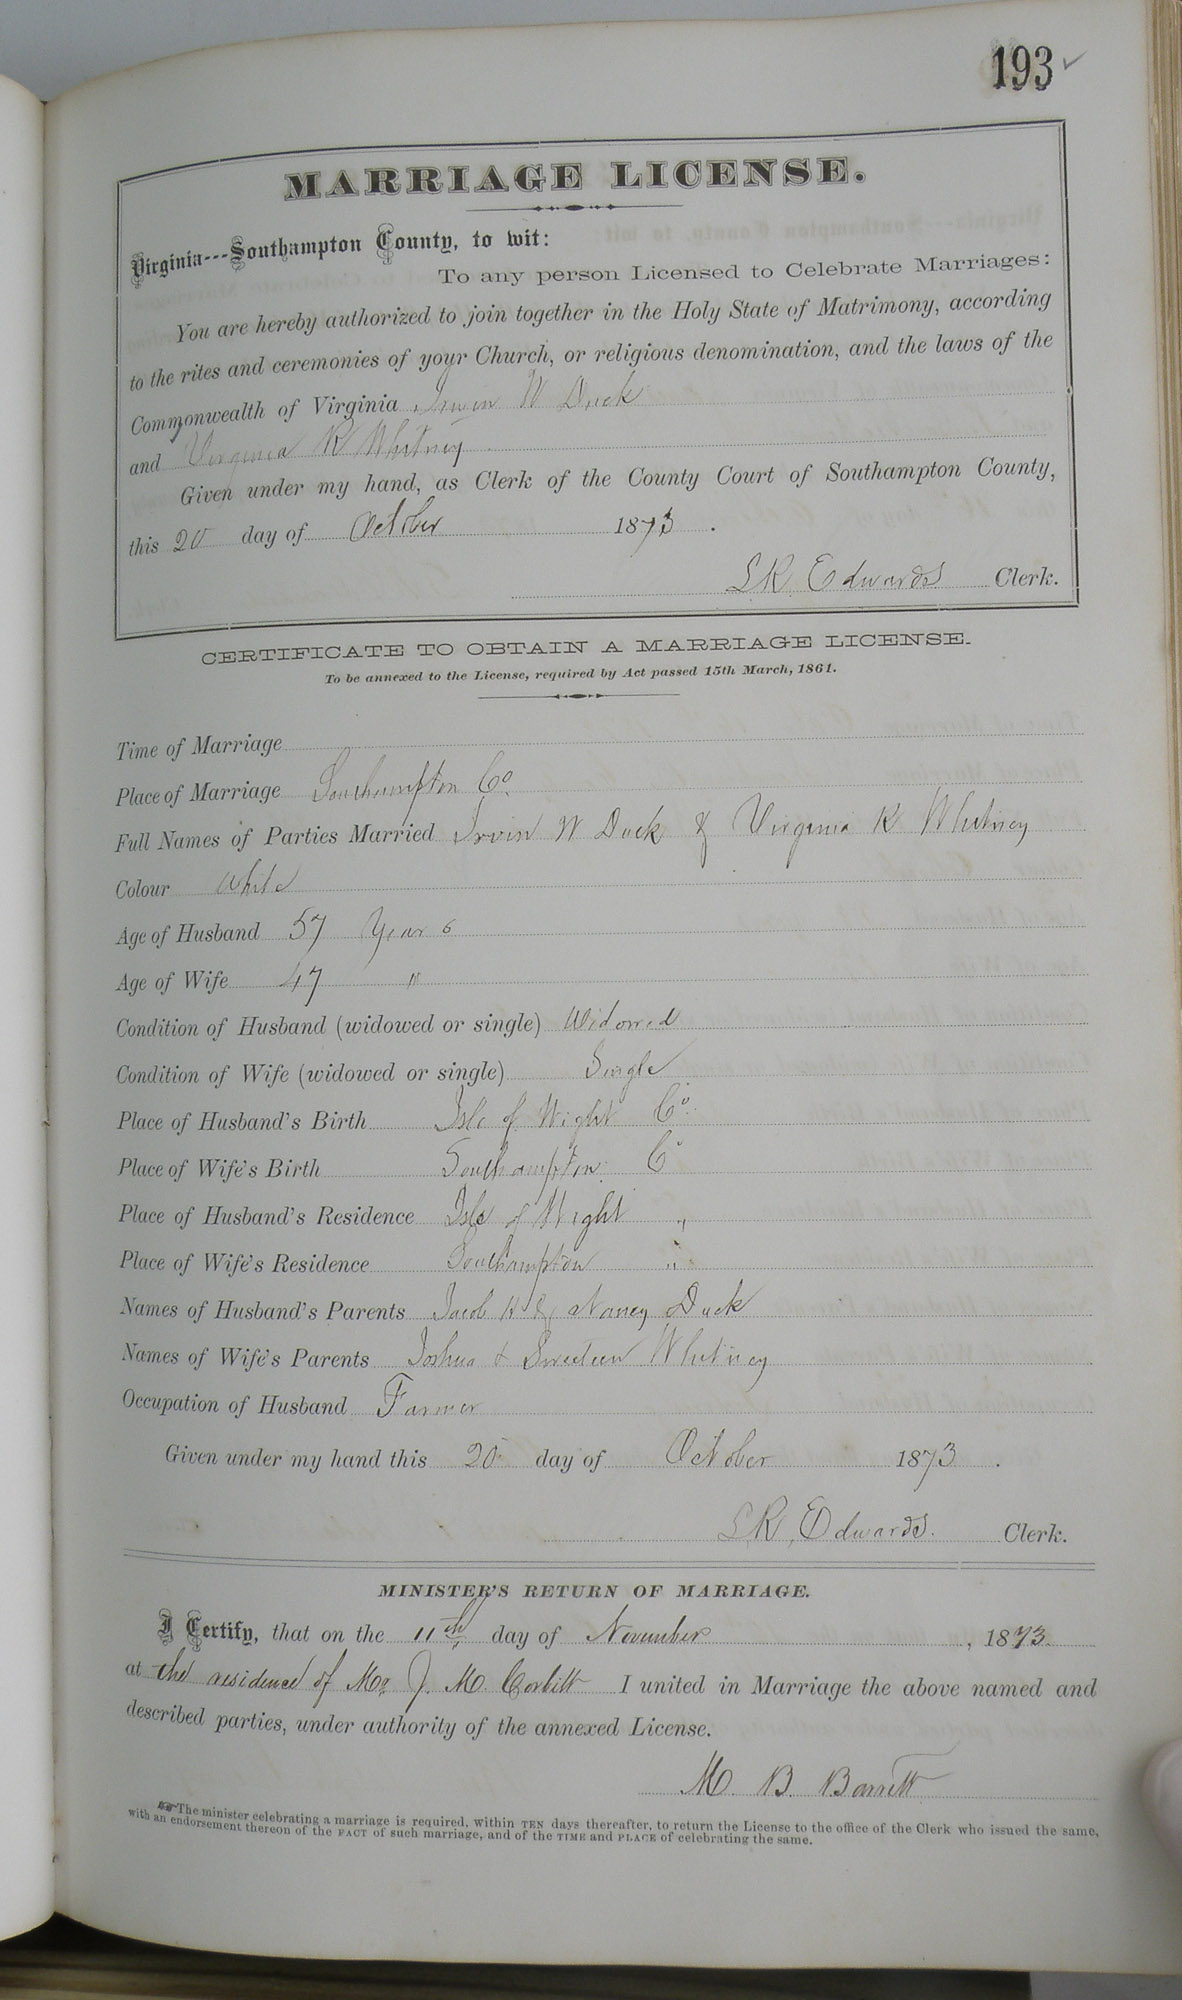 193 ✓
MARRIAGE LICENSE.
Virginia---Southampton County, to wit:
To any person Licensed to Celebrate Marriages:
You are hereby authorized to join together in the Holy State of Matrimony, according
to the rites and ceremonies of your Church, or religious denomination, and the laws of the
Commonwealth of Virginia Irwin W Duck
and Virginia R Whitney
Given under my hand, as Clerk of the County Court of Southampton County,
this 20 day of October 1873.
LR Edwards Clerk.
CERTIFICATE TO OBTAIN A MARRIAGE LICENSE.
To be annexed to the License, required by Act passed 15th March, 1861.
Time of Marriage
Place of Marriage Southampton Co.
Full Names of Parties Married Irvin W Duck & Virginia R Whitney
Colour White
Age of Husband 57 Years
Age of Wife 47 "
Condition of Husband (widowed or single) Widowed
Condition of Wife (widowed or single) Single
Place of Husband's Birth Isle of Wight Co.
Place of Wife's Birth Southampton Co
Place of Husband's Residence Isle of Wight "
Place of Wife's Residence Southampton "
Names of Husband's Parents Jacob H & Nancy Duck
Names of Wife's Parents Joshua & Whitney
Occupation of Husband Farmer
Given under my hand this 20 day of October 1873.
LR Edwards. Clerk.
MINISTER'S RETURN OF MARRIAGE.
I Certify, that on the 11th day of November, 1873.
at the residence of Mr J. M. Corbitt I united in Marriage the above named and
described parties, under authority of the annexed License.
M. B. Barrett
The minister celebrating a marriage is required, within TEN days thereafter, to return the License to the office of the Clerk who issued the same,
with an endorsement thereon of the FACT of such marriage, and of the TIME and PLACE of celebrating the same.